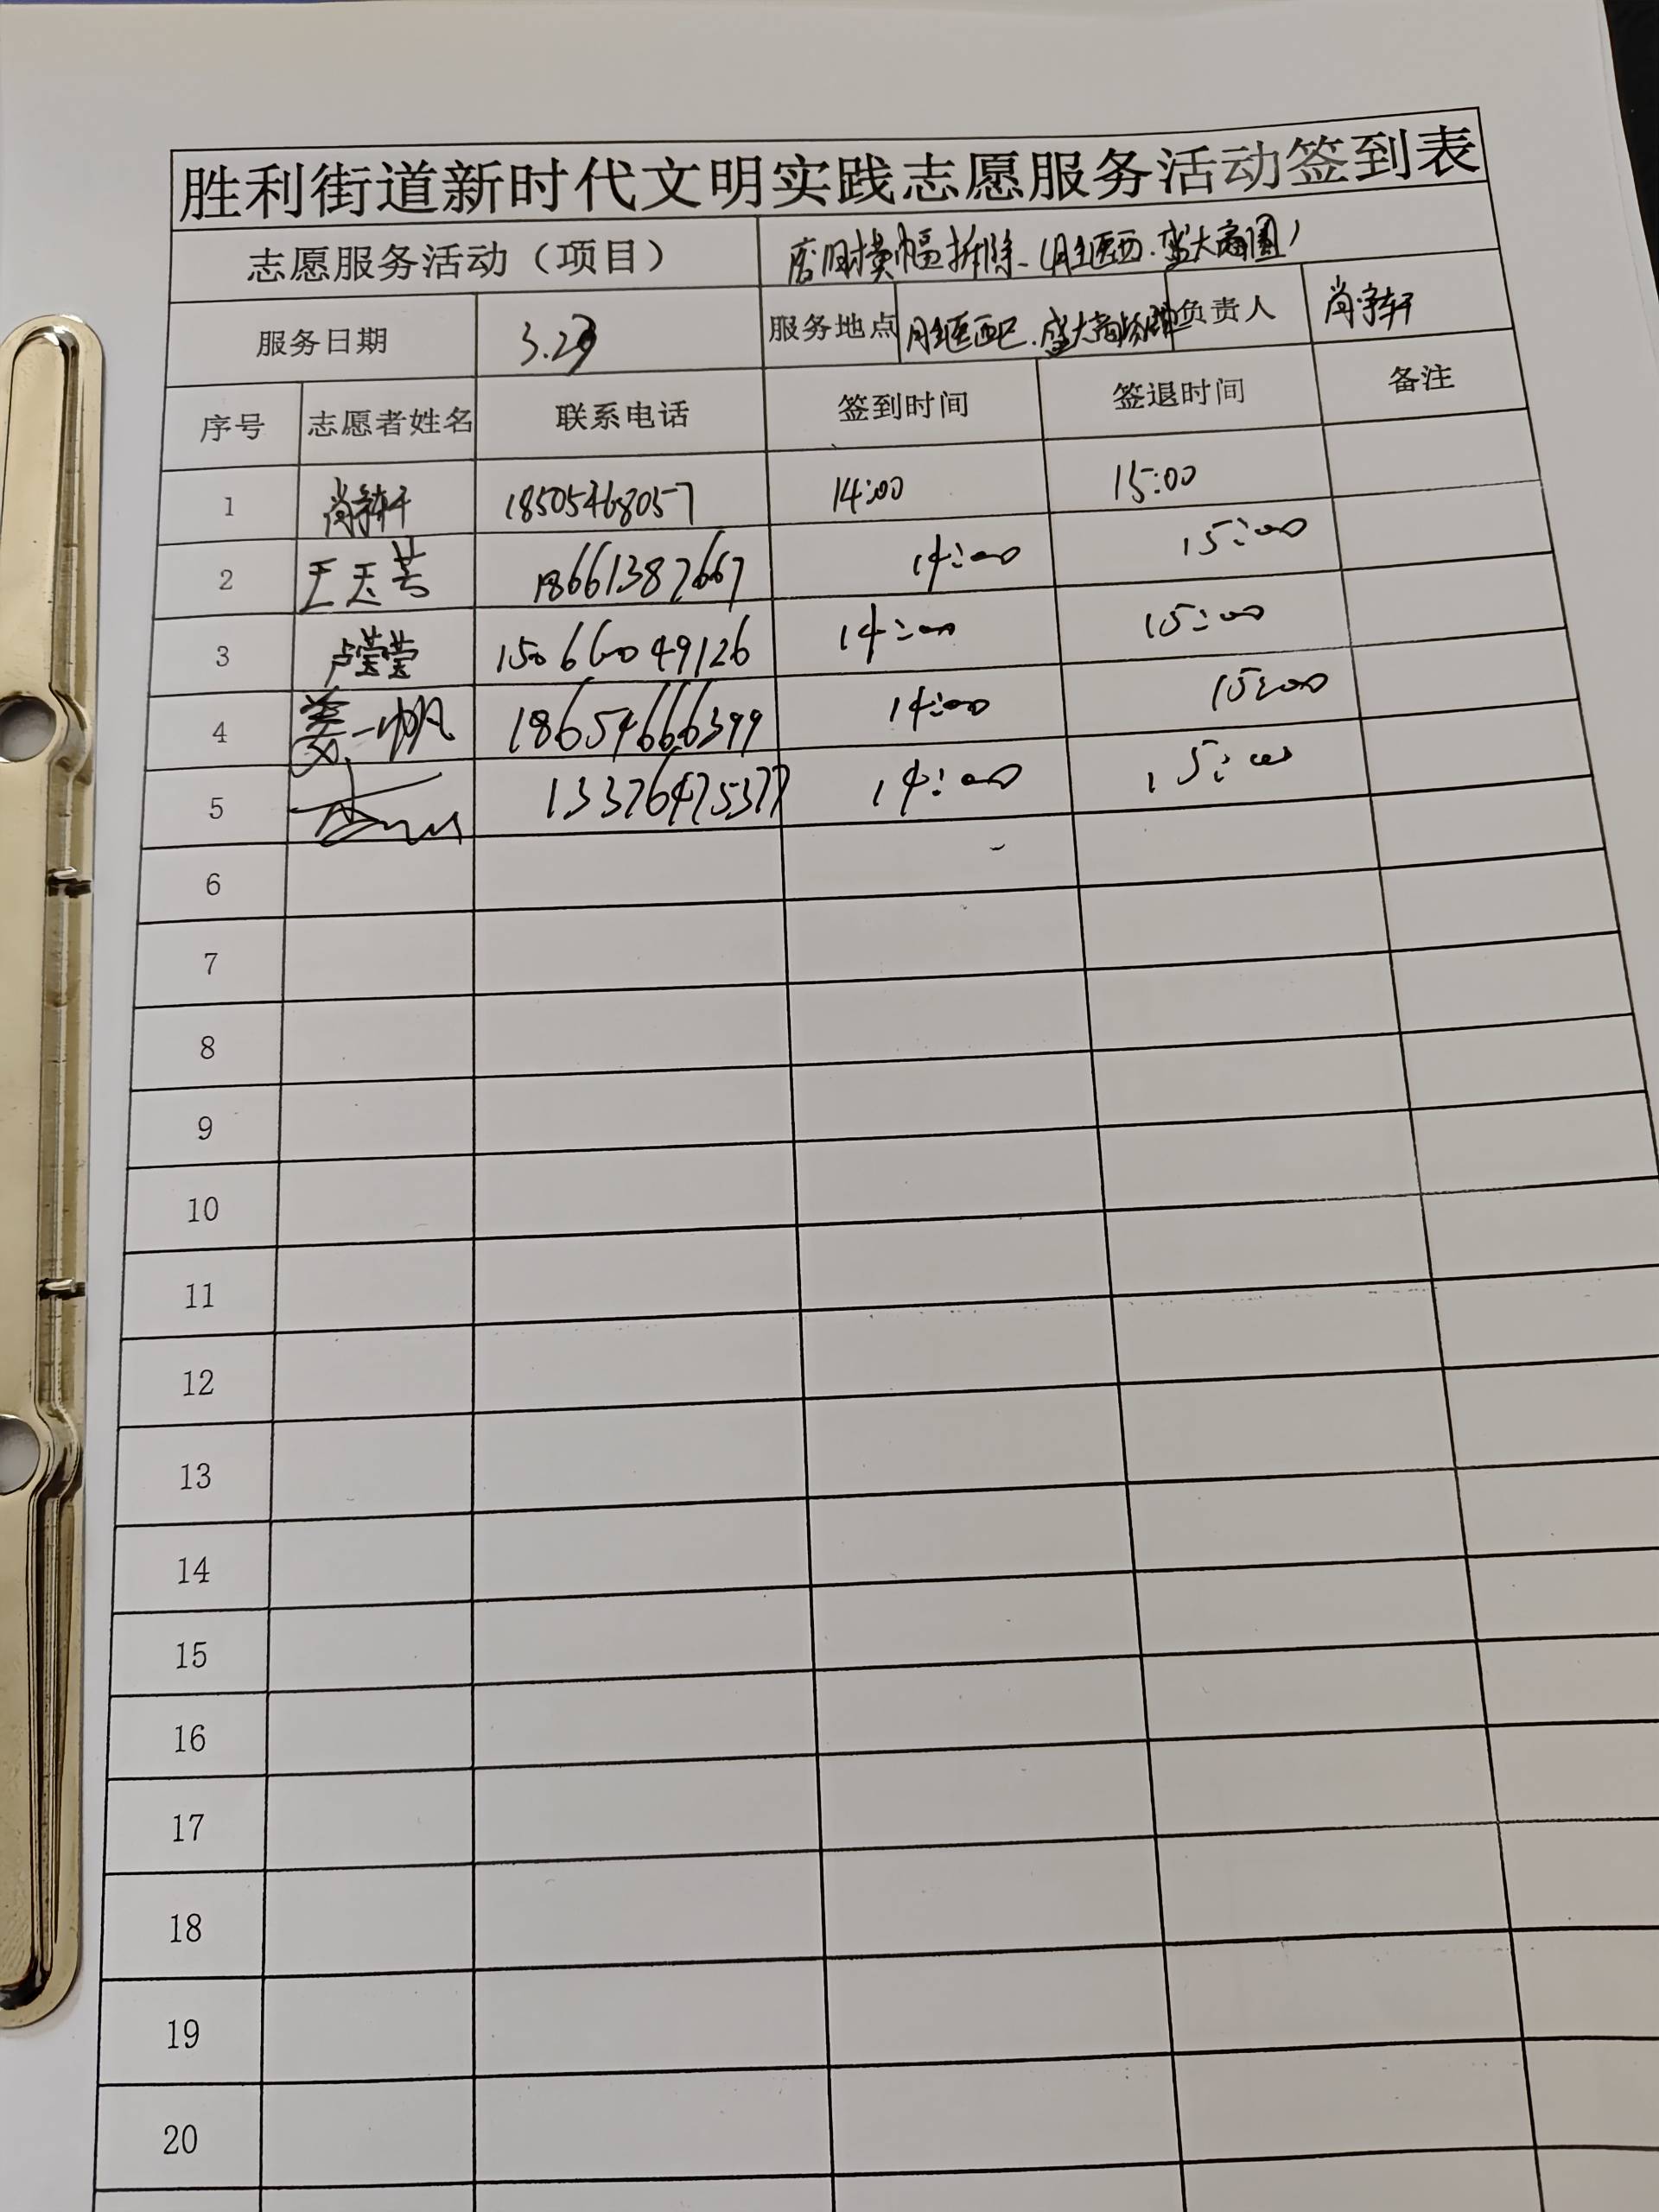 胜利街道新时代文明实践志愿服务活动签到表
志愿服务活动（项目） 废旧横幅拆除 盛大商圈
服务日期 服务地点 盛大商 负责人 肖宇轩
序号 志愿者姓名 联系电话 签到时间 签退时间 备注
1 肖宇轩 18505468057 14:00 15:00
2 18661387667 14:00 15:00
3 卢莹莹 15066049126 14:00 15:00
4 姜一帆 18654666399 14:00 15:00
5 13376475377 14:00 15:00
6
7
8
9
10
11
12
13
14
15
16
17
18
19
20